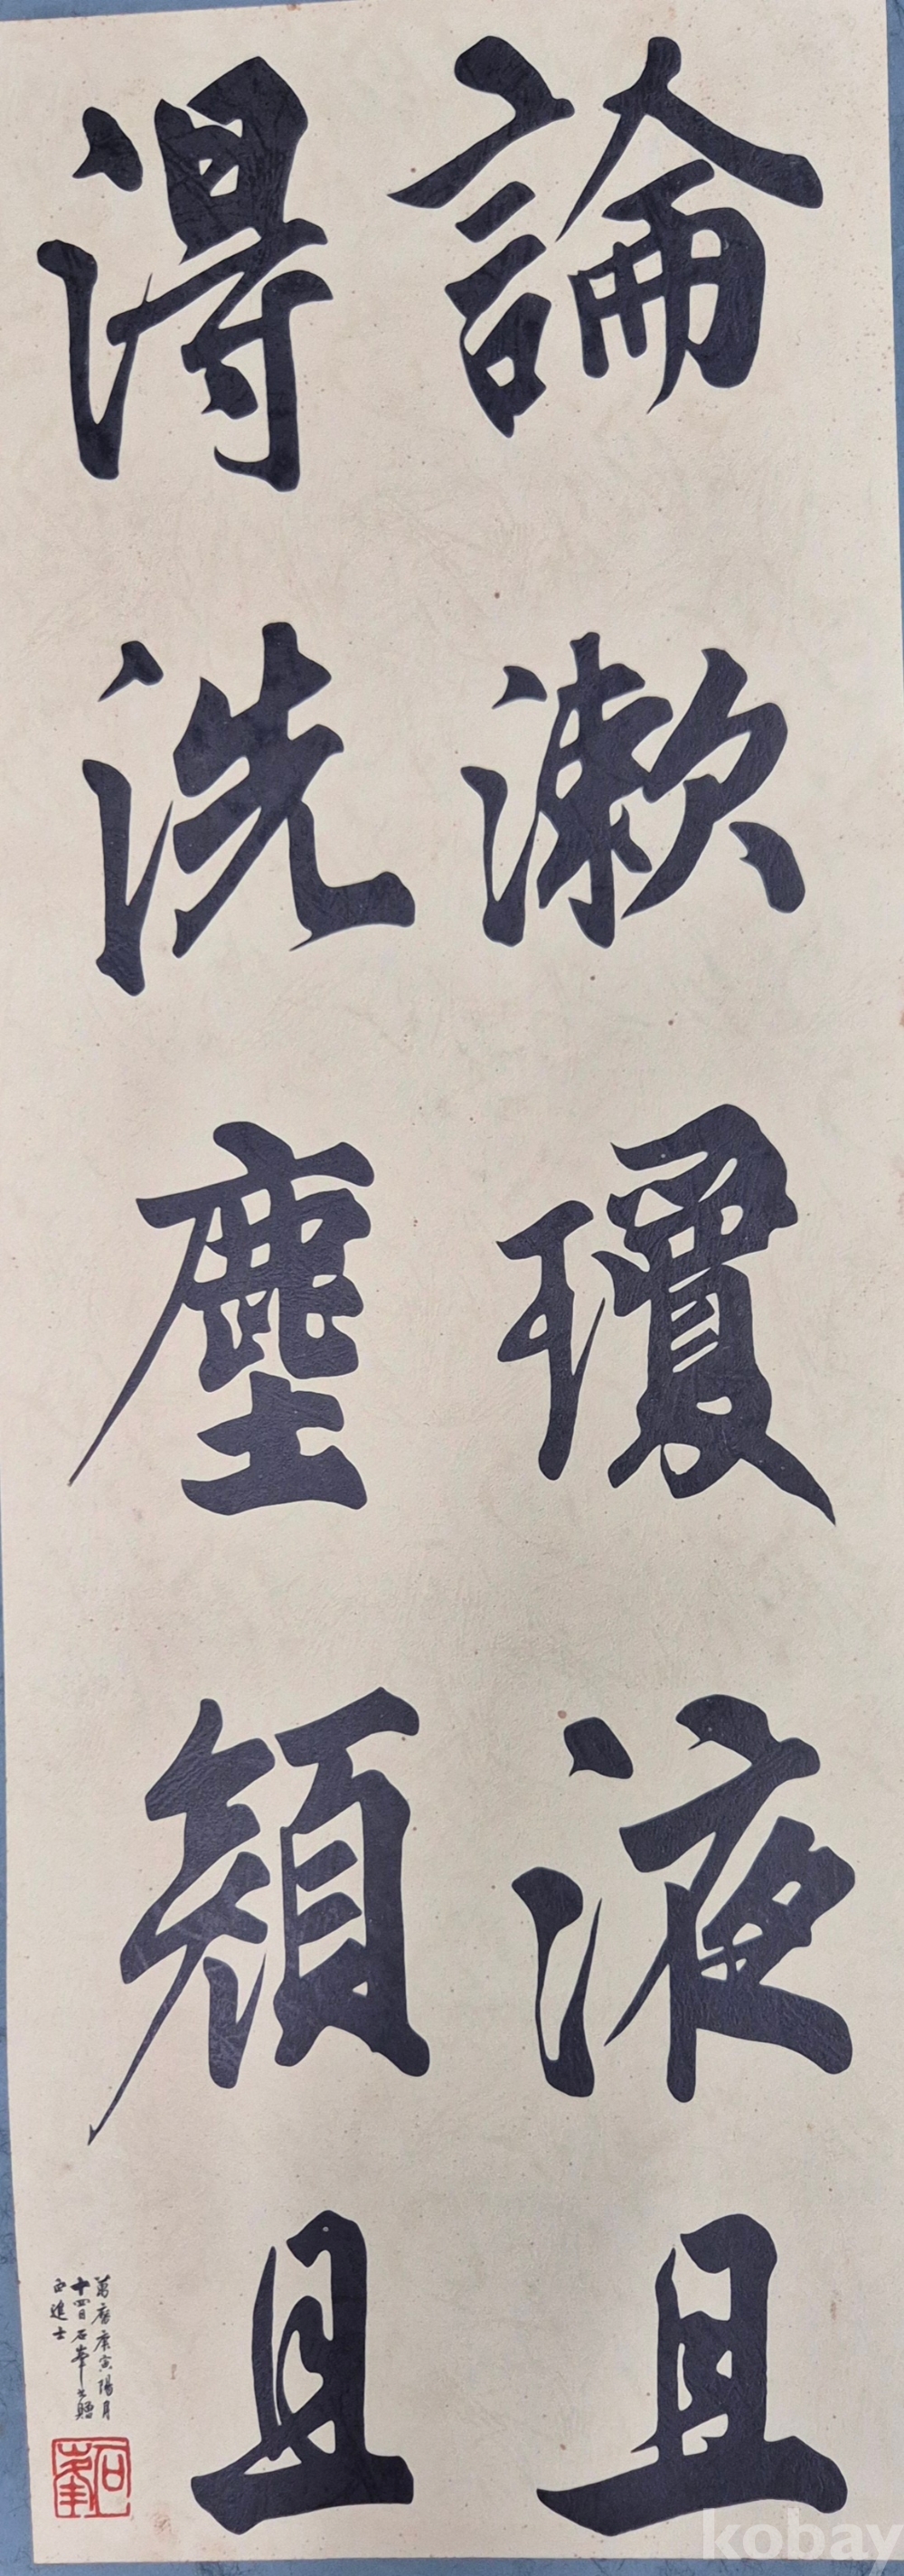 論漱瓊液且
得洗塵顏且
萬曆庚寅陽月
十四日石峯書贈
西進士
石峯
kobay